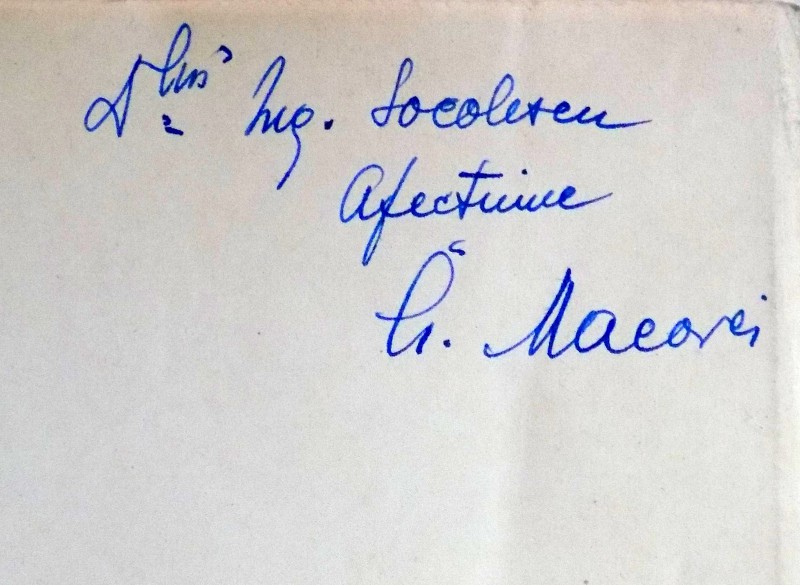 Dlui Ing. Socolescu
Afectuime
I. Macovei